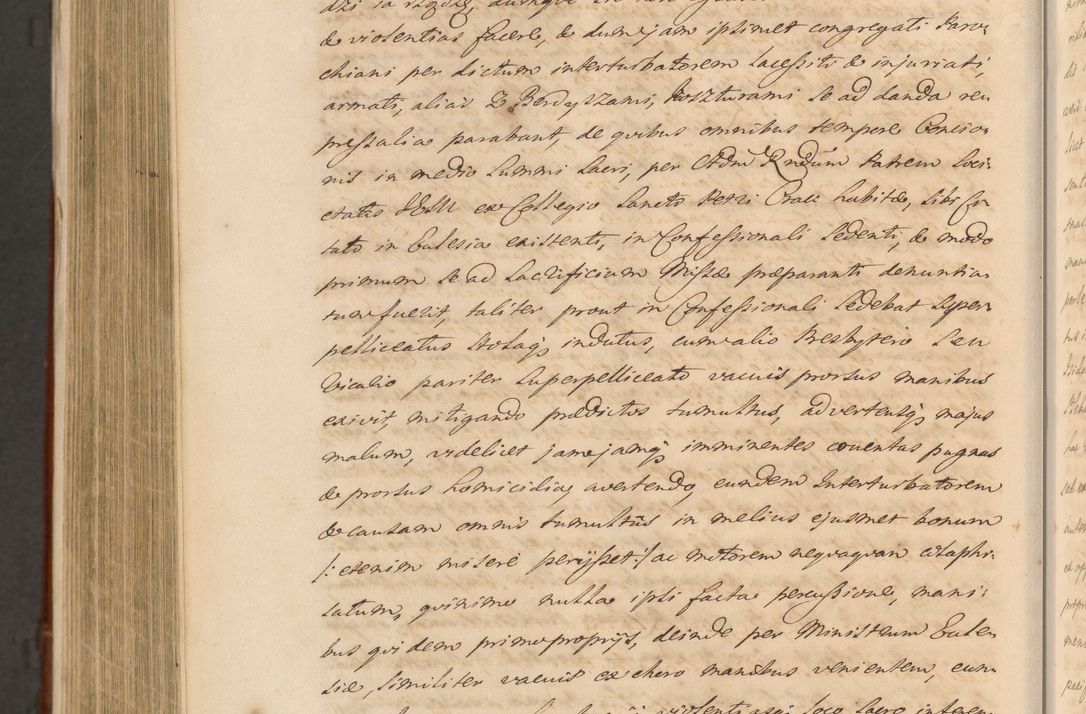 de violentias facere, de dum ejam ipsimet congregati Paro-
chiani per dictum interturbatorem lacessiti & injuriati,
armati, alias z Berdyszami, Kosturami se ad danda re-
pressalia parabant, de quibus omnibus tempore Concio-
nis in medio Summi Sacri, per Adm Rndum Patrem Soci-
etatis JESU ex Collegio Sancti Petri Crac: habitæ, sibi
tato in Eclesia existenti, in Confessionali sedenti, & modo
primum se ad Sacrificium Missæ præparanti denuntia-
tum fuerit, taliter prout in Confessionali sedebat Super-
pelliceatus Stolaq; indutus, cum alio Presbytero seu
Vicario pariter Superpelliceato vacuis prorsus manibus
exivit, mitigando prædictos tumultus, advertensq; majus
malum, videlicet jamjamq; imminentes cruentas pugnas
& prorsus homicidia, avertendo, eundem Interturbatorem
& causam omnis tumultûs in melius ejusmet bonum
/: etenim miserè periisset :/ ac motorem nequaquam
satum, quinimo nulla ipsi facta percussione, mani-
bus quidem primo proprijs, deinde per Ministrum Ecle-
siæ, similiter vacuis manibus venientem, eun-
violenti loco Sacro